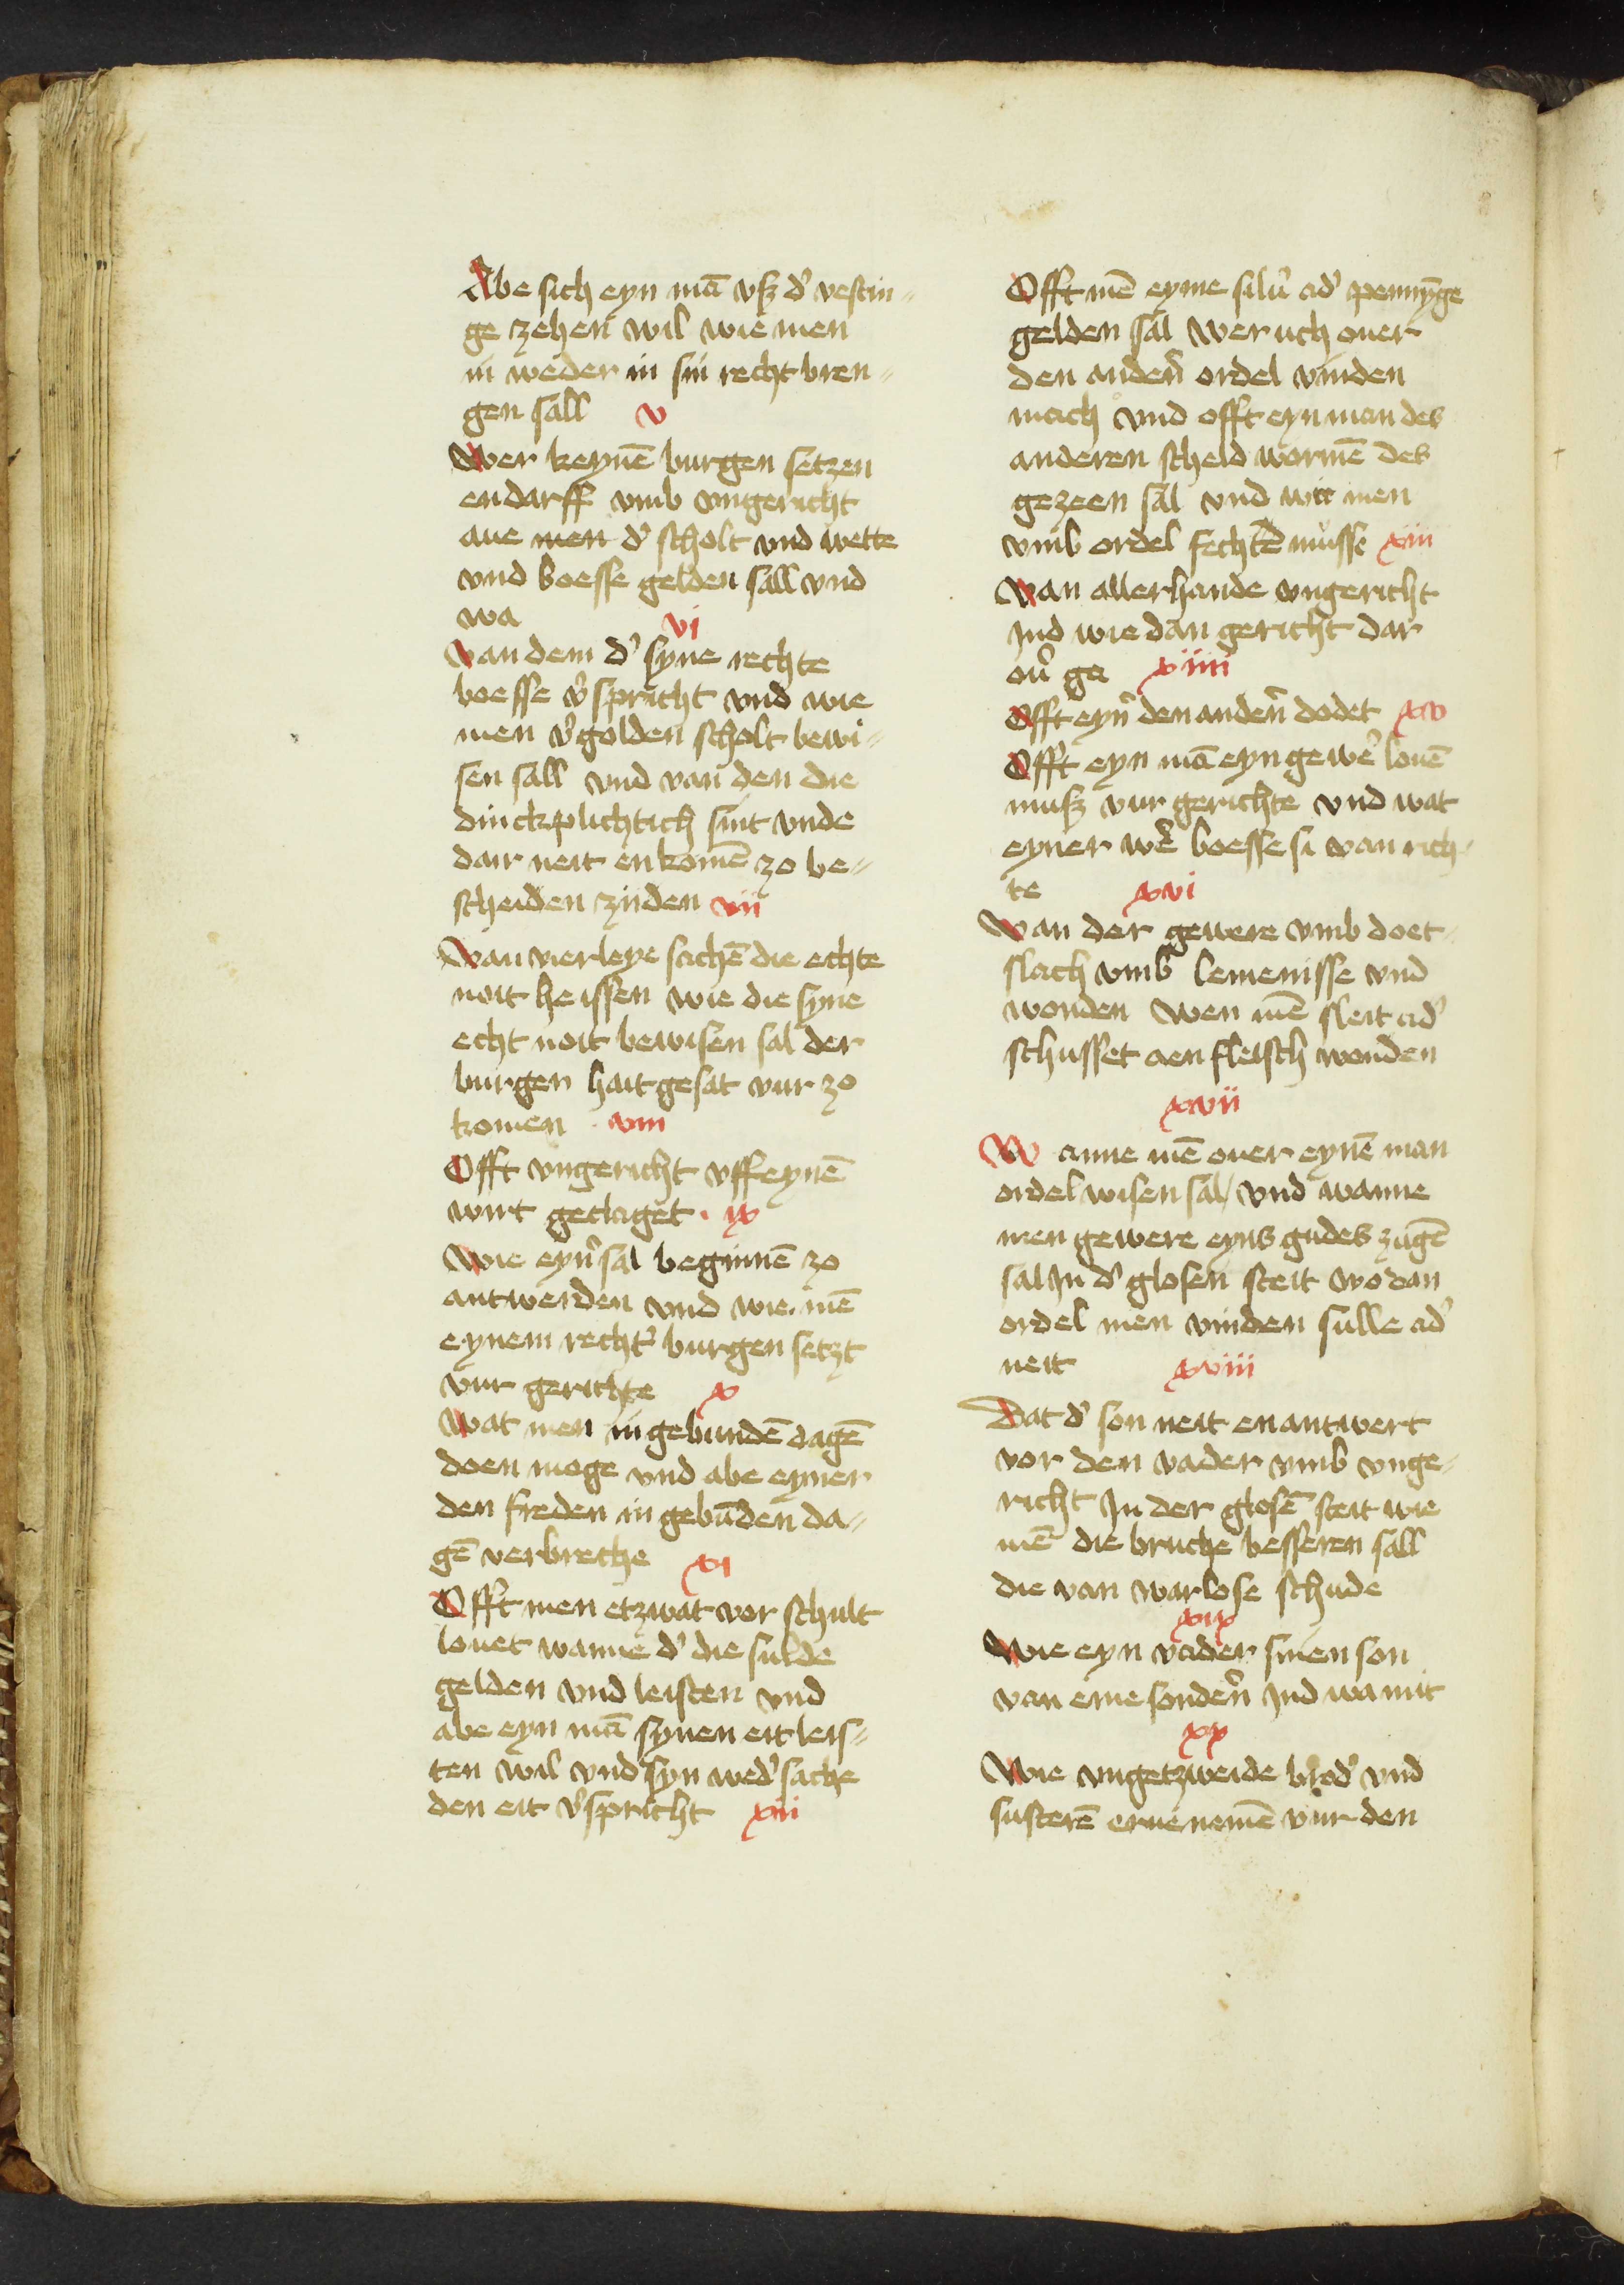 Abe sich eyn mā vsz d' vestin=
ge zehen wil wie men
in weder in sin recht bren=
gen sall v
Wer keynē burgen setzen
en darff vmb vngericht
aue men d' scholt vnd wette
vnd boesse gelden sall vnd
wa vi
Van dem d' syne rechte
boesse v'spricht vnd wie
men v'golden scholt bewi=
sen sall vnd van den die
dinckplichtich sint vnde
dar neit en komē zo be=
scheiden zijden vii
Van vierleye sachē die echte
noit heissen wie die syne
echt noit bewisen sal der
burgen hait gesat vur zo
komen viii
Offt vngericht vff eynē
wirt geclaget . ix
Wie eyn' sal beginnē zo
antwerden vnd wie mē
eynem recht' burgen setzt
vur gerichte x
Wat men in gebundē dagē
doen moge vnd abe eymer
den freden in gebūden da=
gē verbreche xi
Offt men etzwat vor schult
louet wanne d' die sulde
gelden vnd leisten vnd
abe eyn mā synen eit leis=
ten wil vnd syn wed'sache
den eit v'spricht xii
Offt mē eyme silu' ad' pennȳge
gelden sal wer uch ouer
den anden' ordel vinden
mach vnd offt eyn man des
anderen scheld wormē des
gezeen sal vnd wie men
vmb ordel fechtē musse xiii
Van allerhande vngericht
Jnd wie dan gericht dar
ou' ge xiiii
Offt eyn' den anden' dodet xv
Offt eyn mā eyn gewe' louē
musz vur gerichte vnd wat
eyner boesse si van rich=
te xvi
Van der gewere vmb doet=
slach vmb lemenisse vnd
wonden Wen mē sleit ad'
schusset aen fleisch wonden
xvii
Wanne mē ouer eynē man
ordel wisen sal / vnd wanne
men gewere eyns gudes zugē
sal Jn d' glosen steit wo dan
ordel men vinden sulle ad'
neit xviii
Dat d' son neit en antwert
vor den vader vmb vnge=
richt Jn der glosē steit wie
mē die bruche besseren sall
die van warlose schude
xix
Wie eyn vader sinen son
van eme sonden' Jnd wa mit
xx
Wie vngetzweide brod' vnd
susterē erue nemē vur den